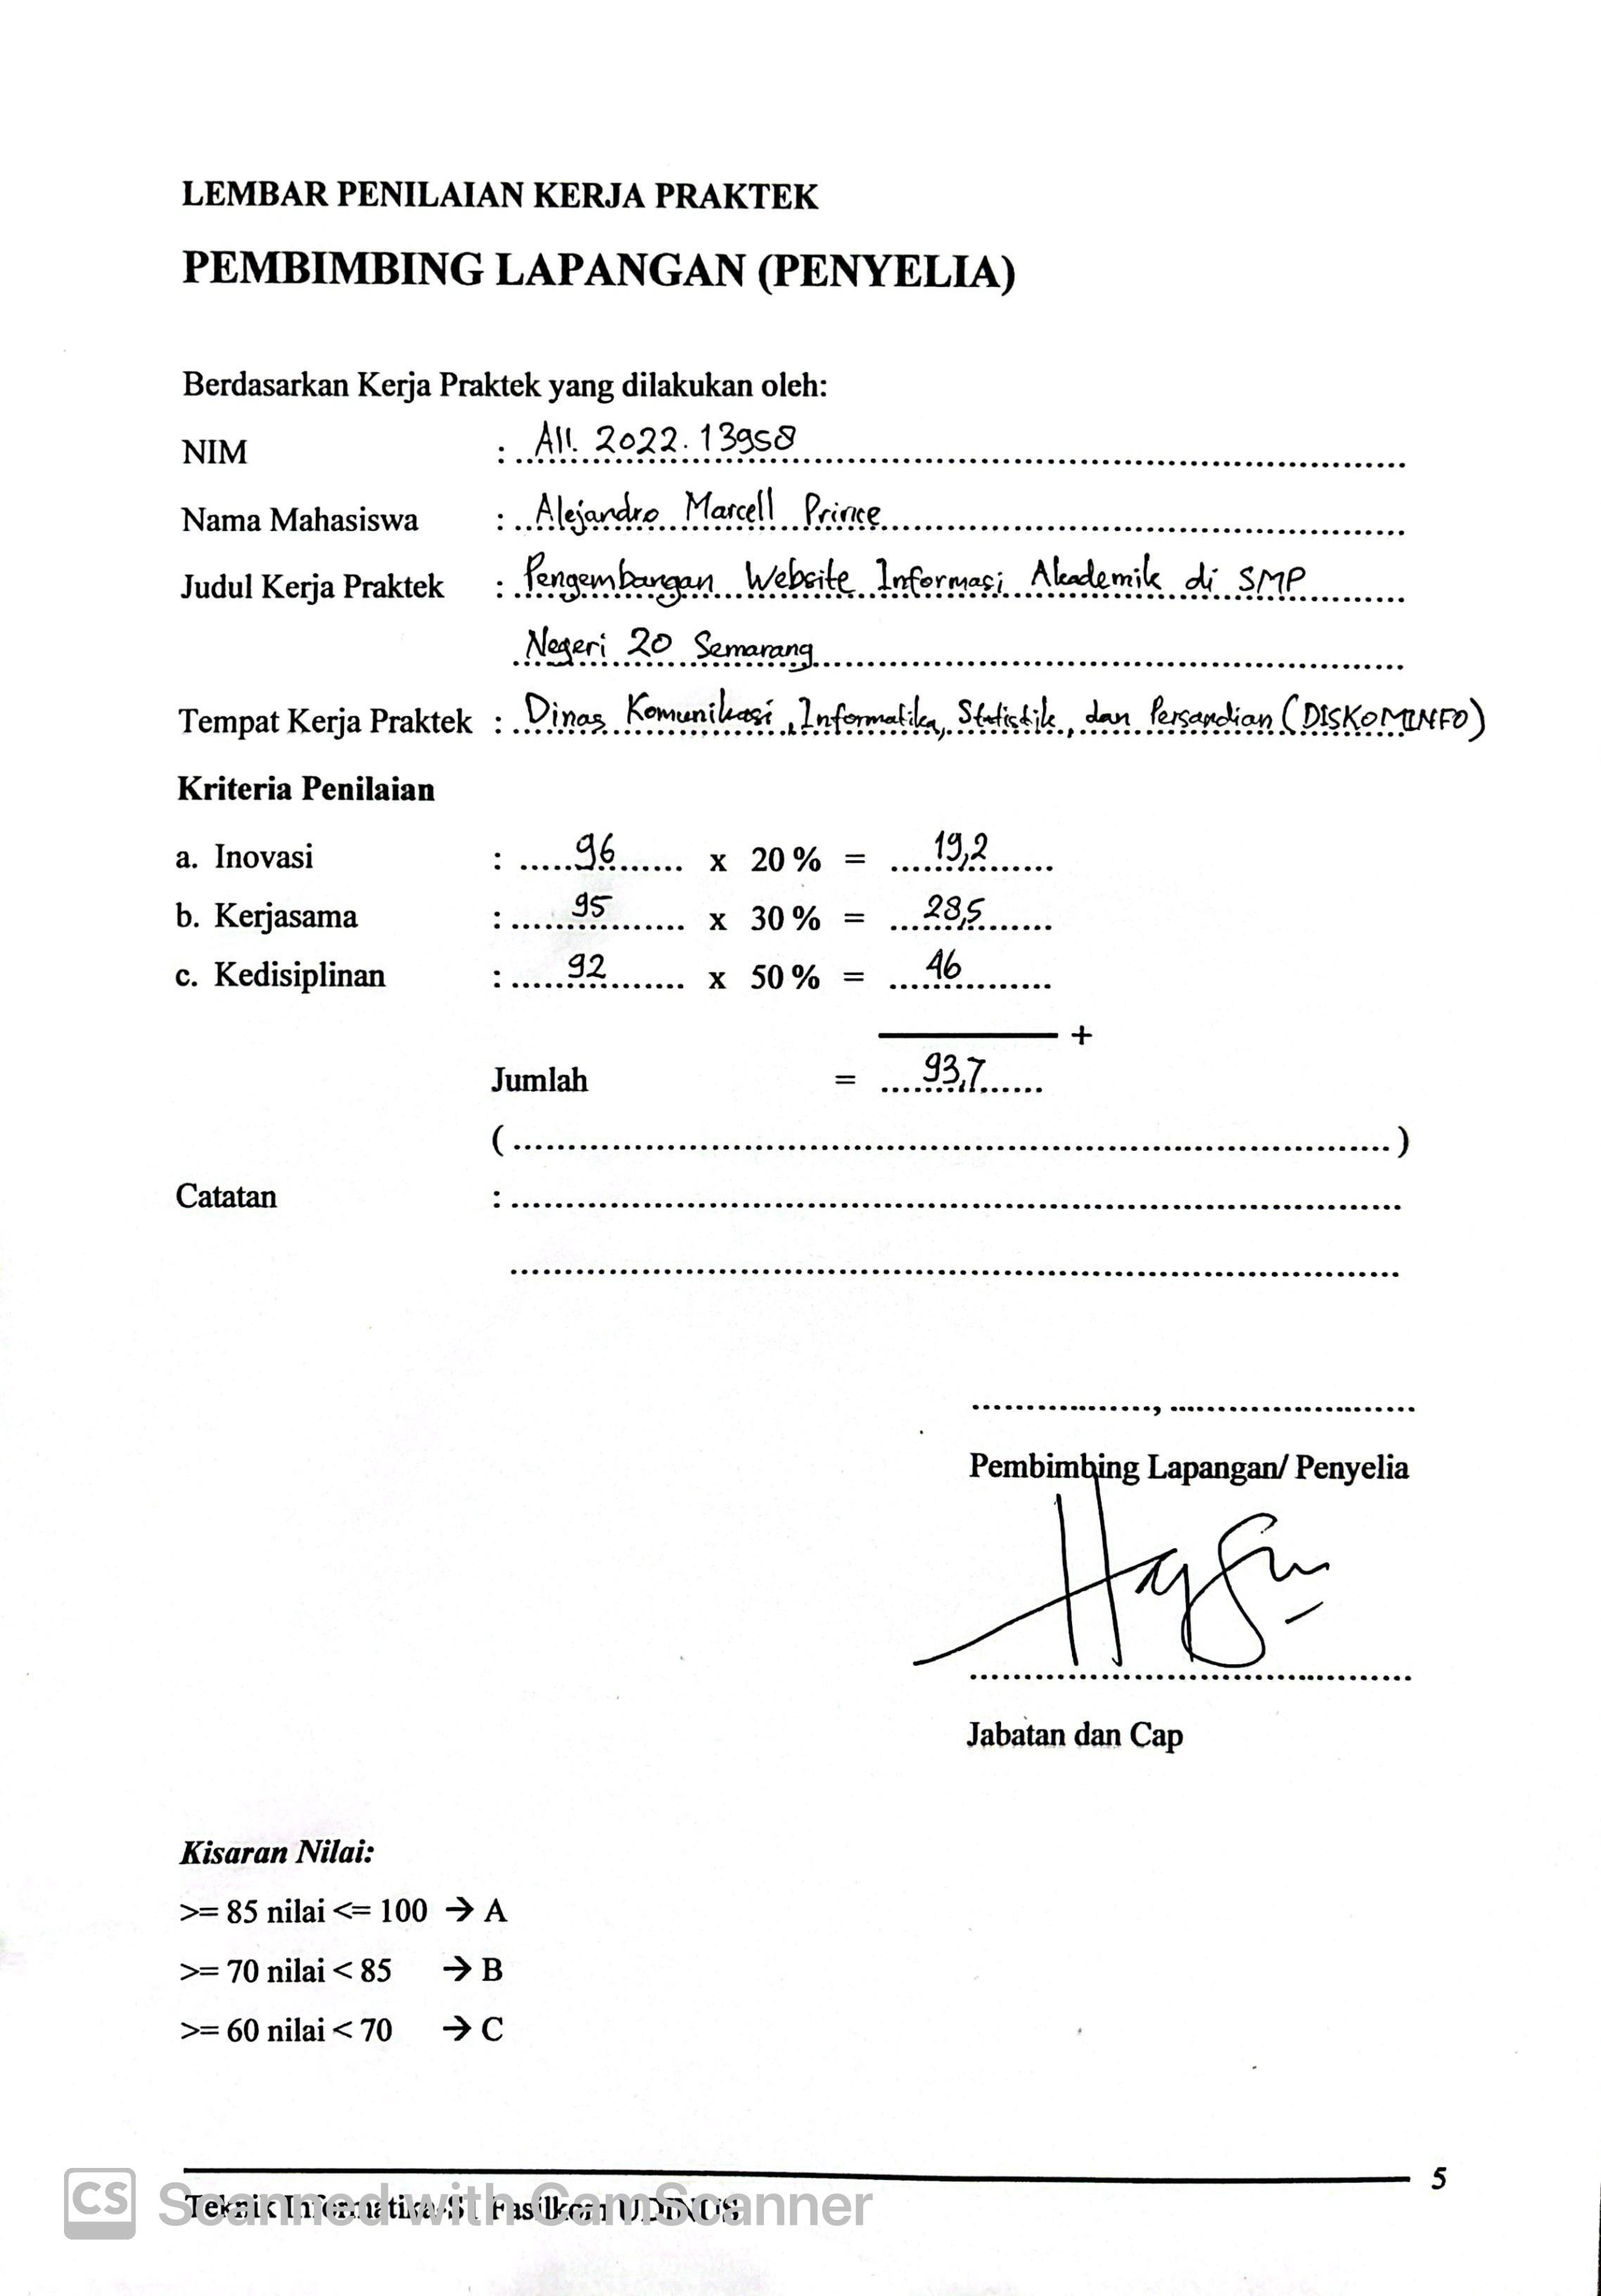 LEMBAR PENILAIAN KERJA PRAKTEK
PEMBIMBING LAPANGAN (PENYELIA)
Berdasarkan Kerja Praktek yang dilakukan oleh:
NIM : A11. 2022. 13958
Nama Mahasiswa : Alejandro Marcell Prince
Judul Kerja Praktek : Pengembangan Website Informasi Akademik di SMP
Negeri 20 Semarang
Tempat Kerja Praktek : Dinas Komunikasi, Informatika, Statistik, dan Persandian (DISKOMINFO)
Kriteria Penilaian
a. Inovasi : 96 x 20 % = 19,2
b. Kerjasama : 95 x 30 % = 28,5
c. Kedisiplinan : 92 x 50 % = 46
+
Jumlah = 93,7
(........)
Catatan :
........, ........
Pembimbing Lapangan/ Penyelia
Jabatan dan Cap
Kisaran Nilai:
>= 85 nilai <= 100 → A
>= 70 nilai < 85 → B
>= 60 nilai < 70 → C
5
Teknik Informatika-S1 Fasilkom UDINUS
CS Scanned with CamScanner